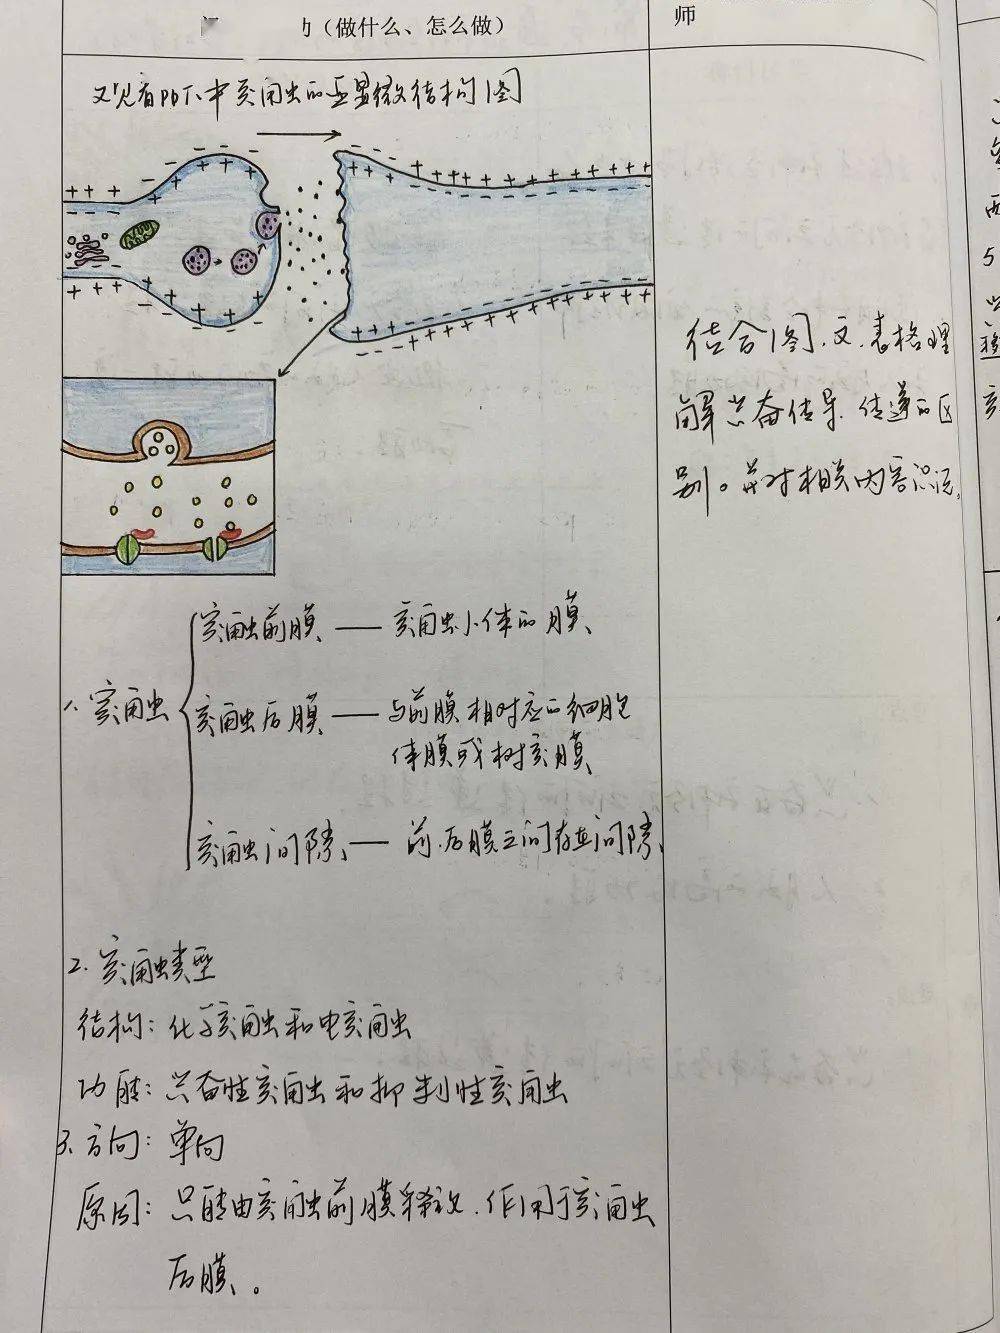 (做什么、怎么做)
师
观看ppt中突触的亚显微结构图
结合图、文、表格理
解兴奋传导、传递的区
别。并对相关内容识记。
1、突触
突触前膜 —— 突触小体的膜
突触后膜 —— 与前膜相对应的细胞
体膜或树突膜
突触间隙 —— 前、后膜之间存在间隙
2. 突触类型
结构: 化学突触和电突触
功能: 兴奋性突触和抑制性突触
3、方向: 单向
原因: 只能由突触前膜释放、作用于突触
后膜。